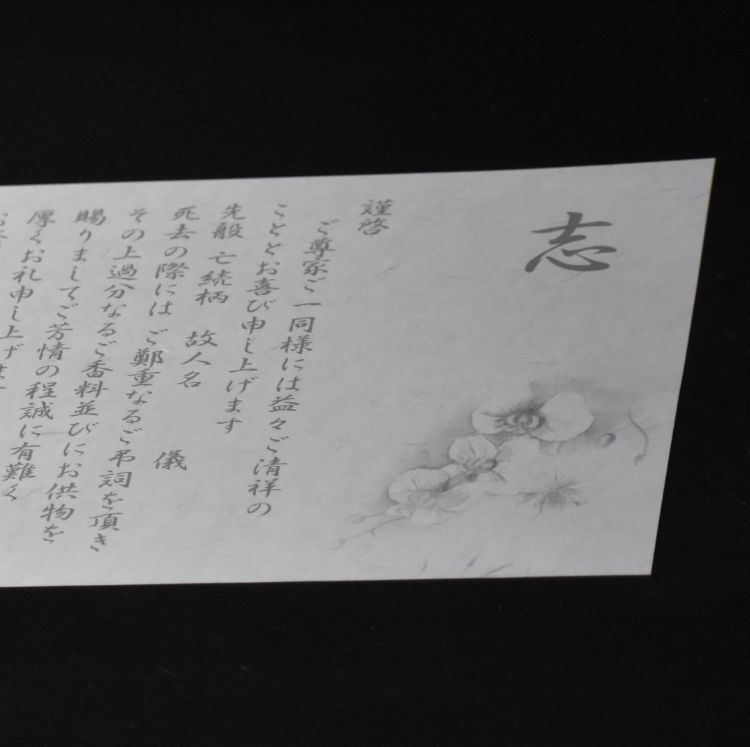 志
謹啓
ご尊家ご一同様には益々ご清祥の
こととお喜び申し上げます
先般 亡続柄 故人名 儀
死去の際には ご鄭重なるご弔詞を頂き
その上過分なるご香料並びにお供物を
賜りましてご芳情の程誠に有難く
厚くお礼申し上げます